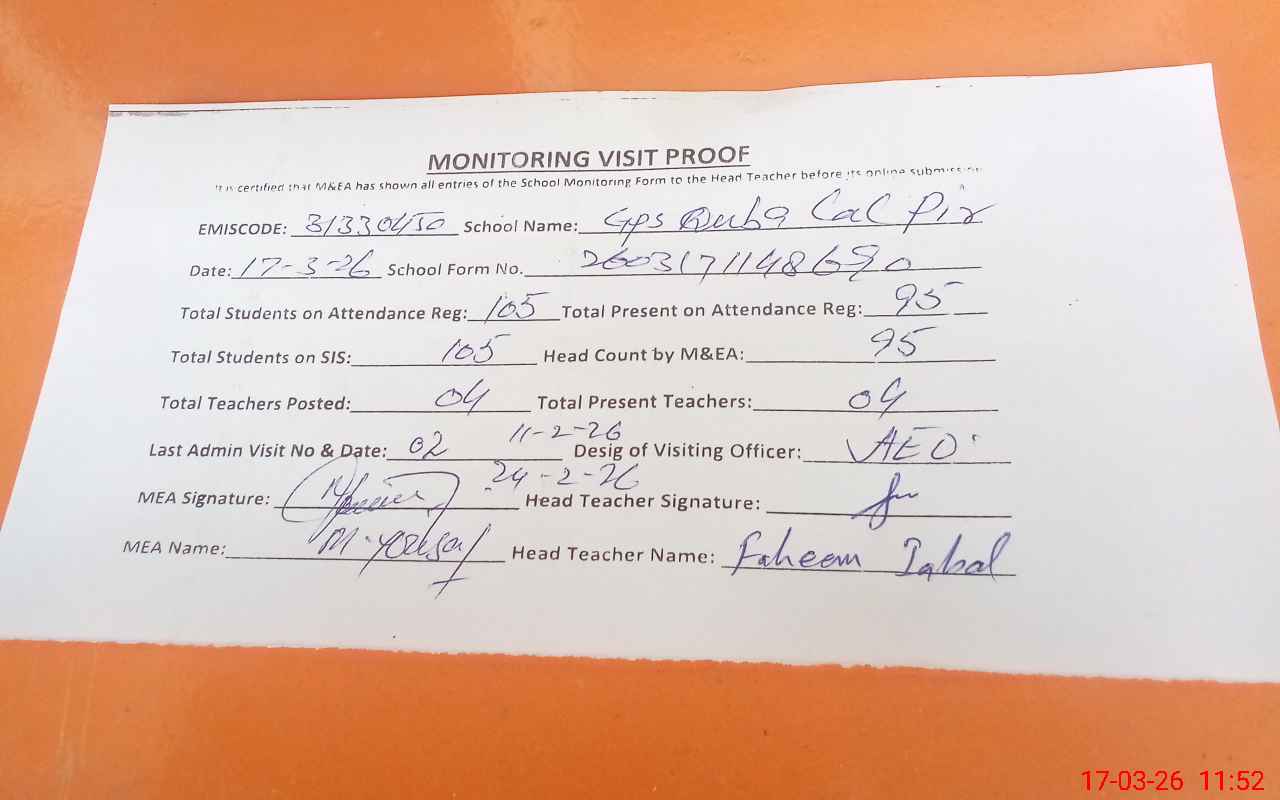 MONITORING VISIT PROOF
It is certified that M&EA has shown all entries of the School Monitoring Form to the Head Teacher before its online submission.
EMISCODE: 31330450 School Name: Gps Quba Lal Pir
Date: 17-3-26 School Form No. 2603171148690
Total Students on Attendance Reg: 105 Total Present on Attendance Reg: 95
Total Students on SIS: 105 Head Count by M&EA: 95
Total Teachers Posted: 04 Total Present Teachers: 04
Last Admin Visit No & Date: 02 11-2-26 Desig of Visiting Officer: AEO
24-2-26
MEA Signature: Head Teacher Signature:
MEA Name: M. Yousaf Head Teacher Name: Faheem Iqbal
17-03-26 11:52